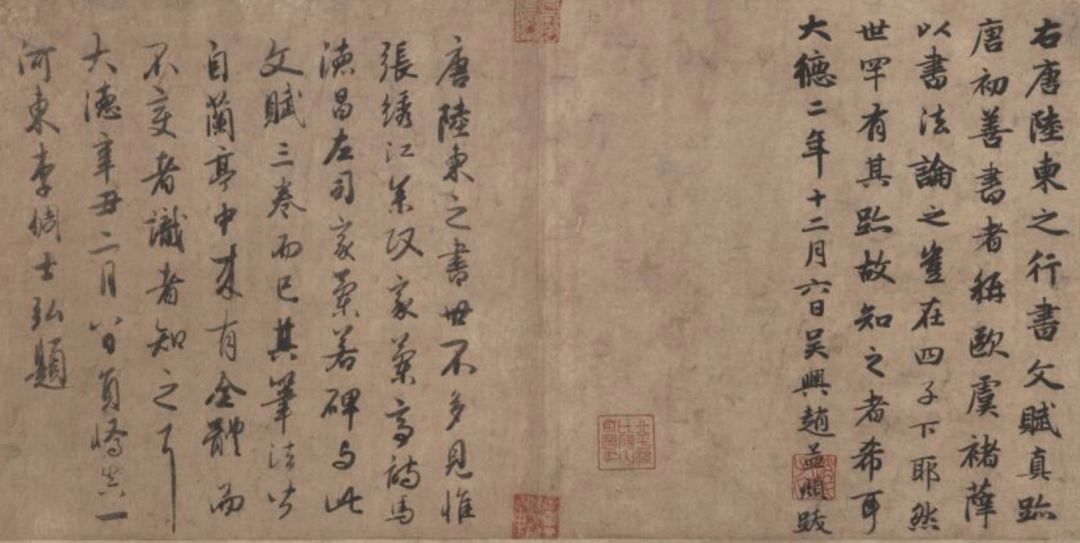 右唐陸柬之行書文賦真跡
唐初善書者稱歐虞褚薛
以書法論之豈在四子下耶然
世罕有其跡故知之者希耳
大德二年十二月六日吳興趙孟頫跋
唐陸柬之書世不多見惟
張繡江參政家蘭亭詩馬
德昌左司家蘭若碑与此
文賦三卷而已其筆法皆
自蘭亭中來有全體而
不變者識者知之耳
大德辛丑二月八日員嶠真一
河東李倜士弘題